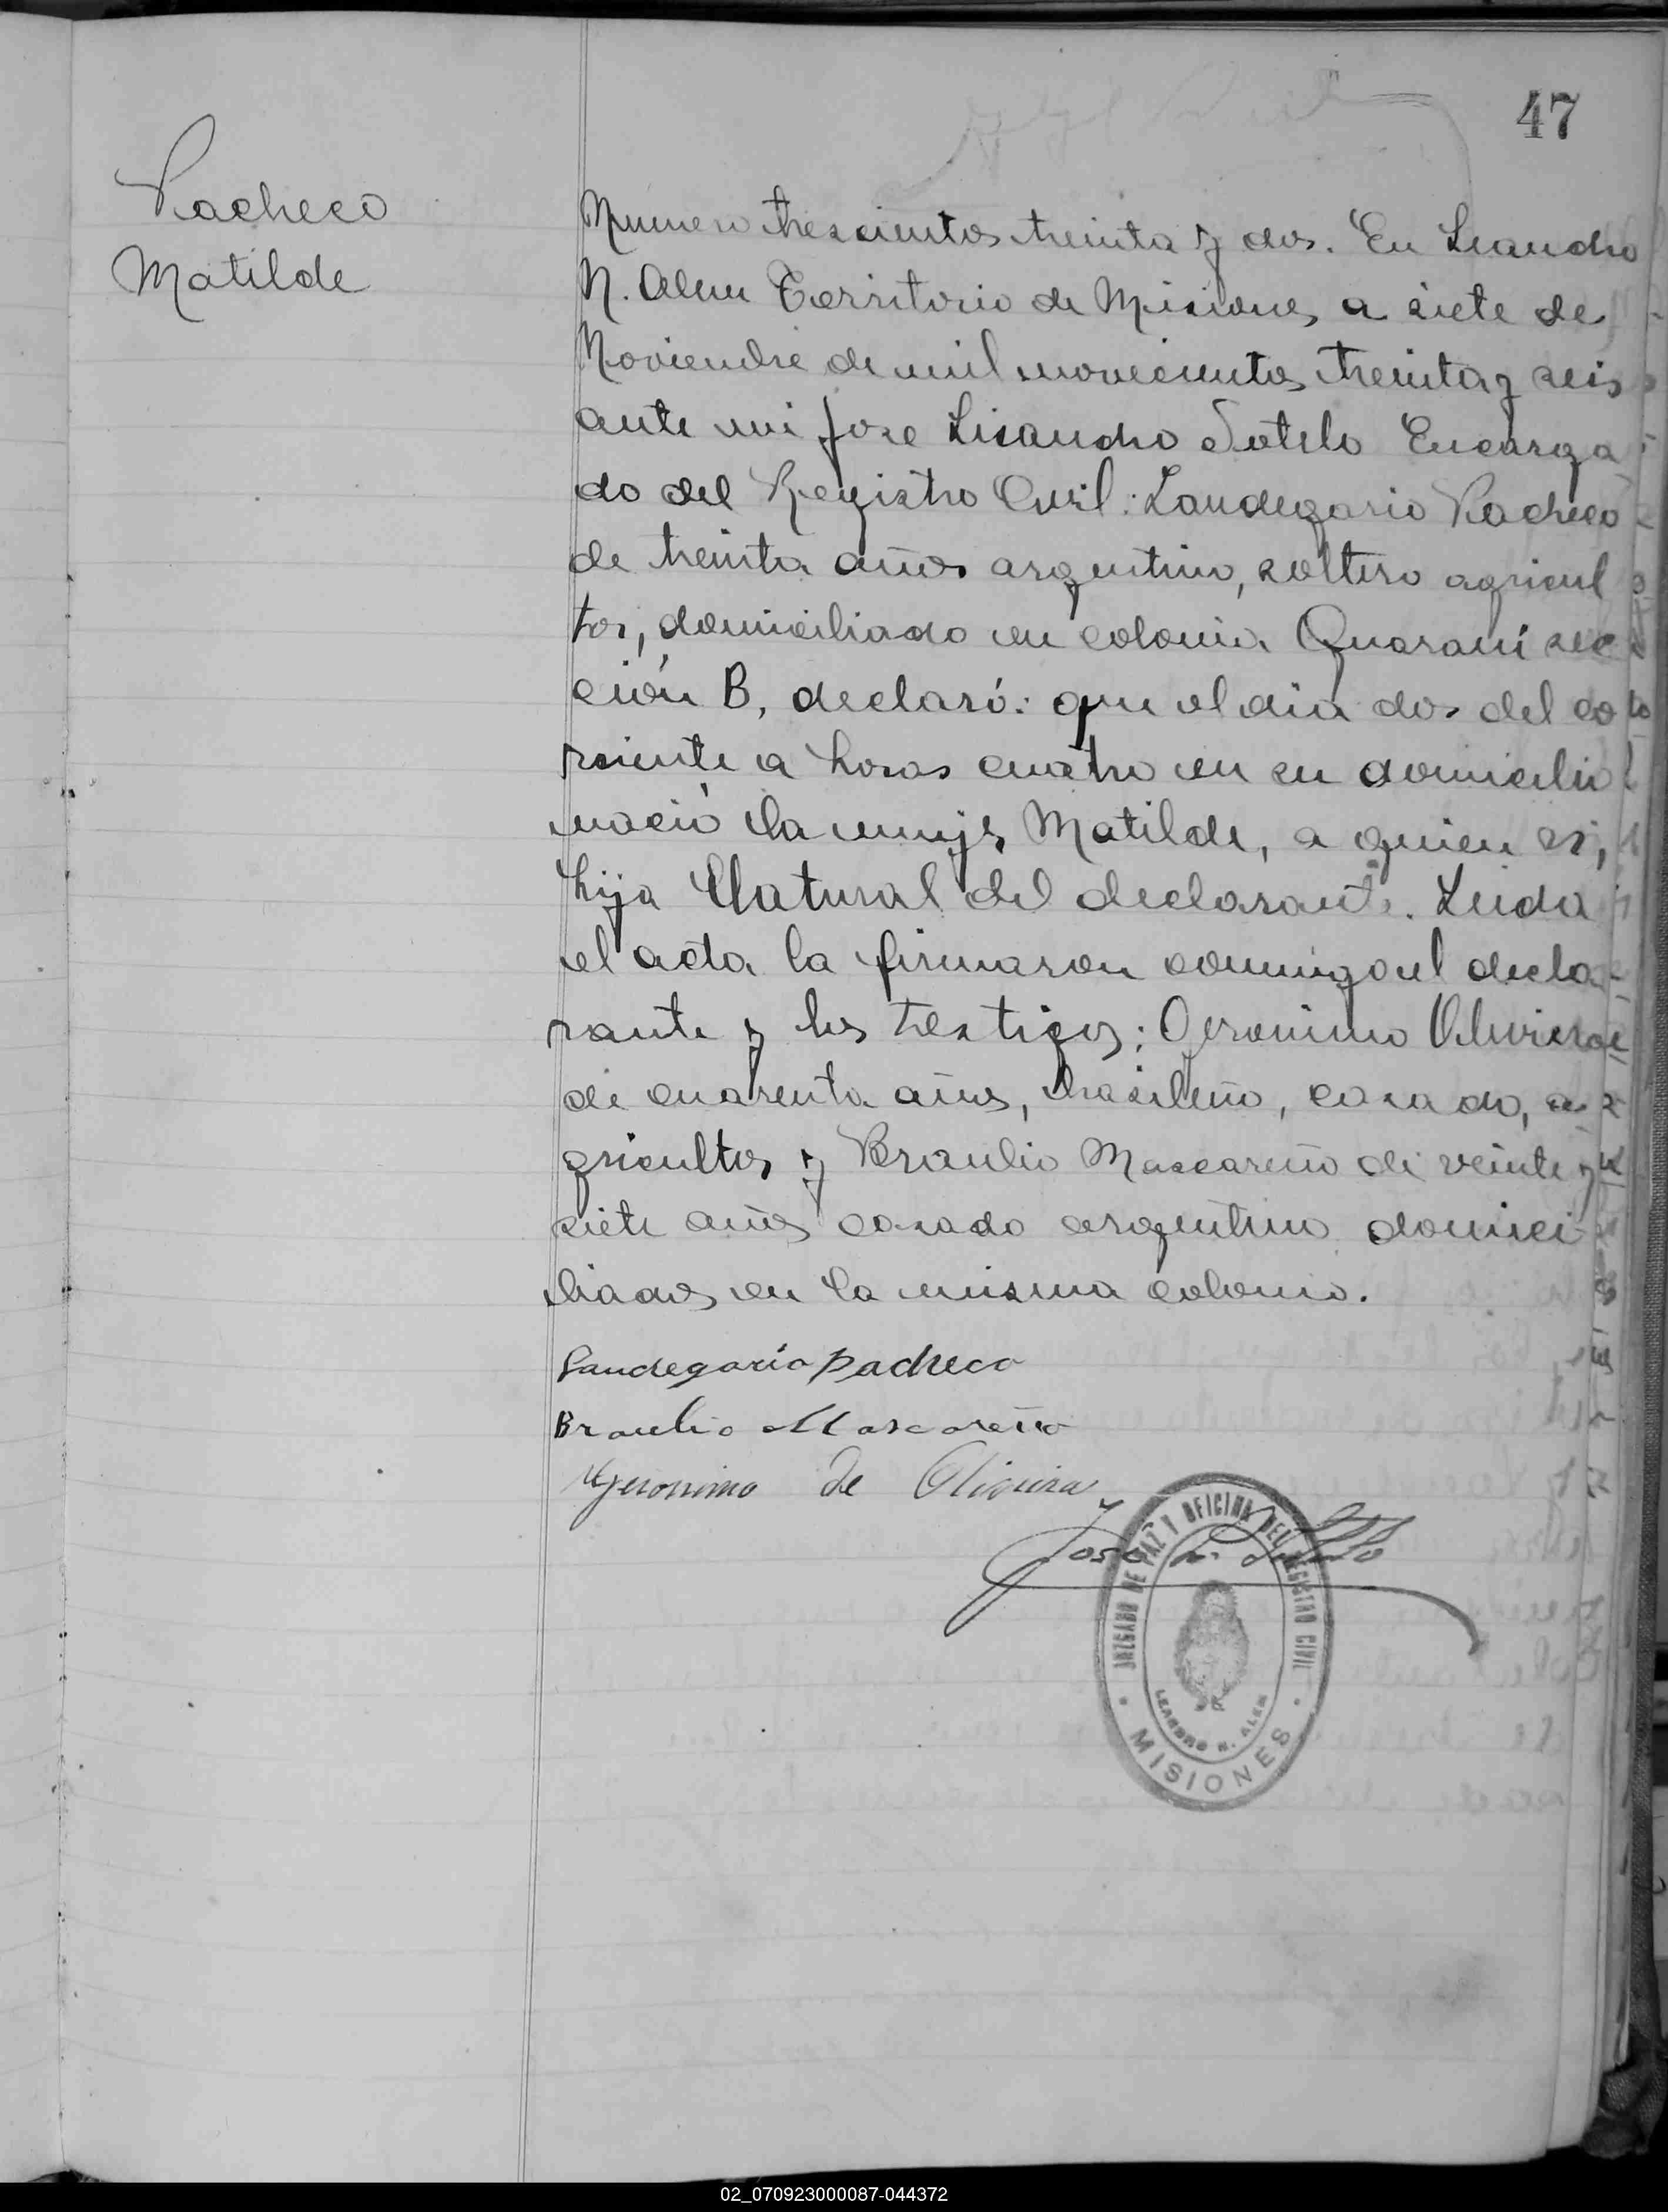 47
Pacheco
Matilde
Numero trescientos treinta y dos. En Leandro
N. Alem Territorio de Misiones, a siete de
Noviembre de mil novecientos treinta y seis
ante mi Jose Lisandro Sotelo Encarga
do del Registro Civil: Laudegario Pacheco
de treinta años argentino, soltero agricul
tor, domiciliado en colonia Guaraní sec
ción B, declaró: que el dia dos del co
rriente a horas cuatro en su domicilio
nació la mujer Matilde, a quien es,
hija Natural del declarante. Leida
el acta la firmaron conmigo el decla
rante y los testigos: Geronimo Oliviera
de cuarenta años, brasileño, casado, a
gricultor y Braulio Mascareño de veinte y
siete años casado argentino domici
liados en la misma colonia.
Laudegario Pacheco
Braulio Mascareño
Geronimo de Oliviera
Jose L. Sotelo
JUZGADO DE PAZ Y OFICINA DEL REGISTRO CIVIL
LEANDRO N. ALEM
MISIONES
02_070923000087-044372